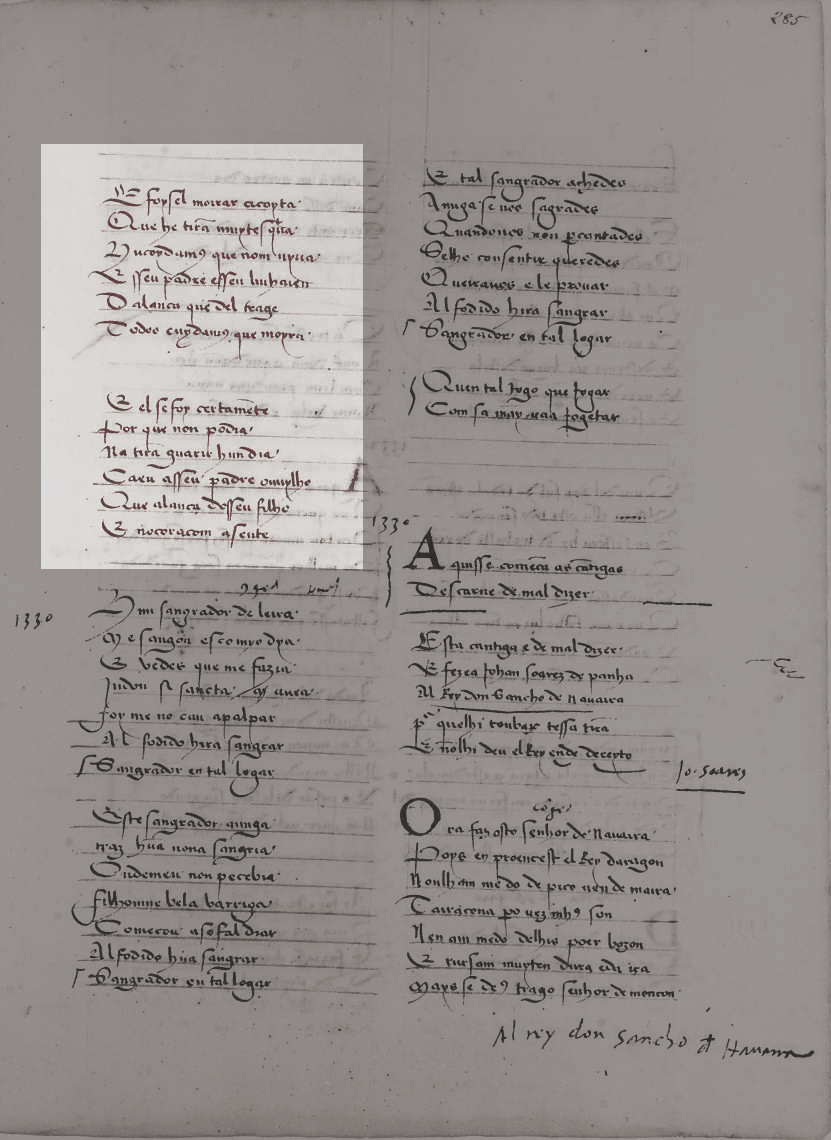 285
E foysel morar acopta
Que he tirã muytesq̃ua
Hu coydam9 que nom uyua
E sseu padre esseu linhaien
D alança que del trage
Todos cuydam9 que moyra
E el se foy certamẽte
Por que non podia
Na tirã guarir hun dia
Caeu asseu padre omylho
Que alança dosseu filho
E nocoraçom assente
1330
Hun sangrador de leira
Me sangou
E vedes que me fazia
Foy me no cuu apalpar
Al fodido hira sangrar
Sangrador en tal logar
Este sangrador amiga
traz hũa noua sangria
Ondemeu non percebia
filhoume pela barriga
Começou
Al fodido hira sangrar
Sangrador en tal logar
E tal sangrador achedes
Amiga se uos sagrades
Quandouos non percatades
Selho consentir queredes
Querrauos e le prouar
Al fodido hira sangrar
Sangrador en tal logar
Quen tal jogo quer jogar
Com sa may uaa jogetar
1330
Aquisse começã as cãtigas
Descarne de mal dizer
Esta cantiga é de mal dizer
E fezea Johan soarez de pauha
Al Rey don Sancho de Nauarra
p̃ quelhi roubarõ tessa tirã
E nõlhi deu elRey ende dereyto
Jo. Soares
Ora faz osto senhor de Nauarra
Poys en proencest el Rey daragon
Nonlham medo de pico nen de marra
Tarracona
Nen am medo delhis poer bozon
Mays se de9 trago senhor de moncon
Al rey don Sancho de Navarra